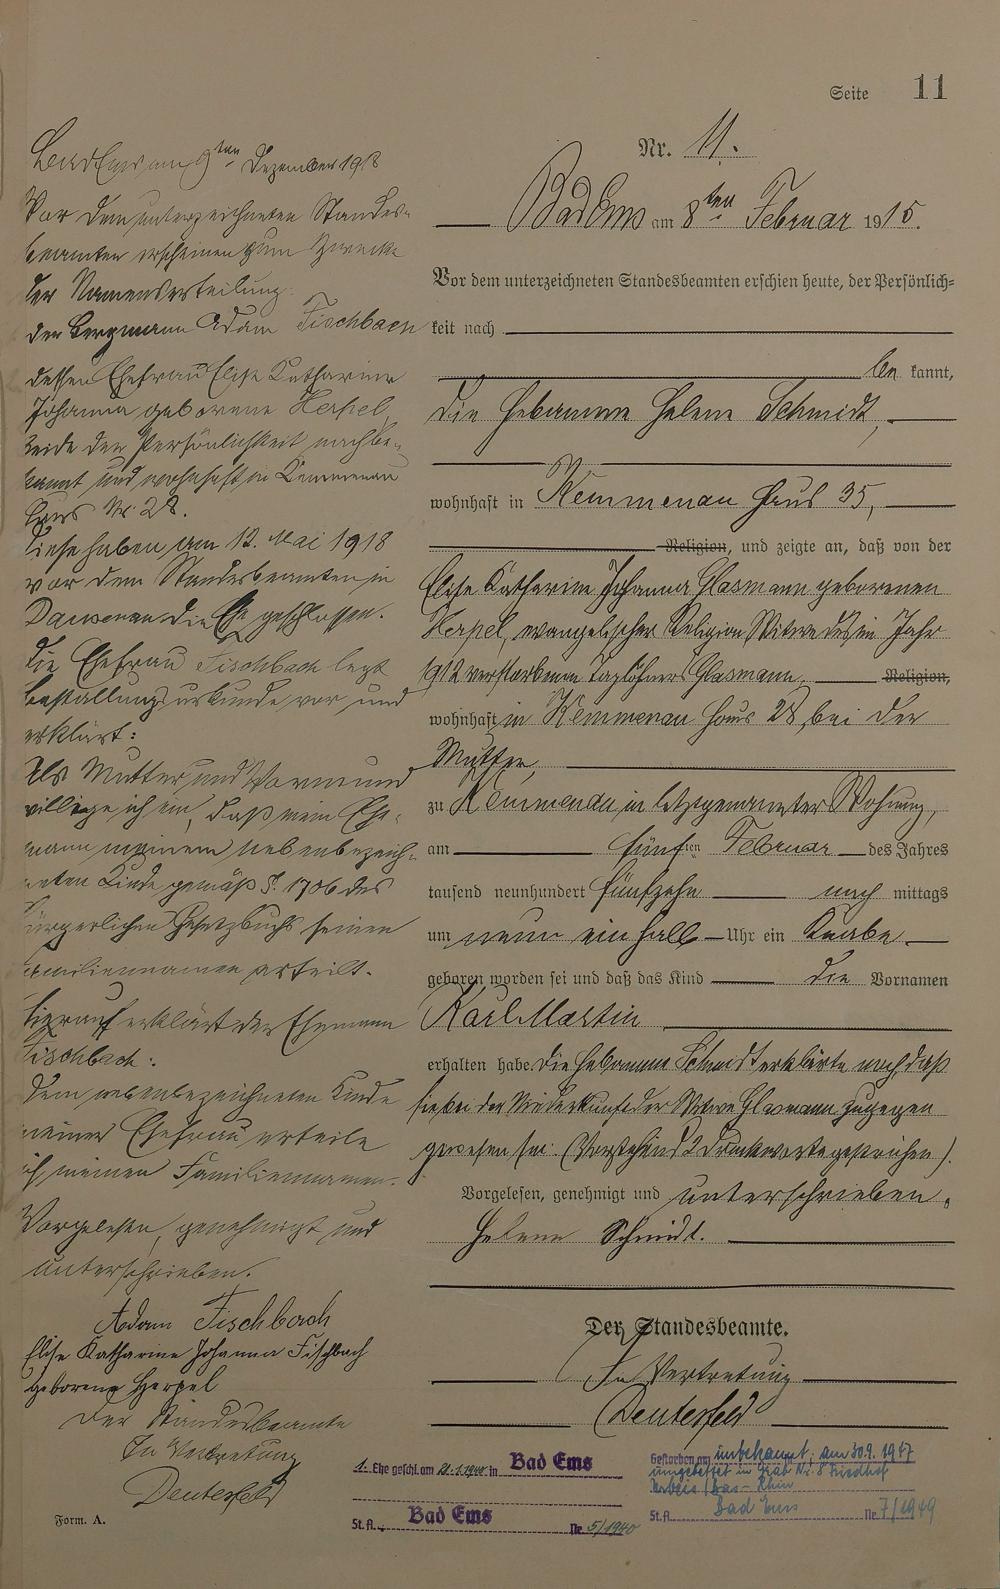 Seite 11
Nr. 11.
Bad Ems am 8ten Februar 1915.
Vor dem unterzeichneten Standesbeamten erschien heute, der Persönlich=
keit nach
be kannt,
die Hebamme Helene Schmidt,
wohnhaft in Kemmenau Haus 35,
Religion, und zeigte an, daß von der
Elise Katharine Johanna Glasmann geborenen
Herpel, evangelischer Religion Witwe des im Jahr
1912 verstorbenen Taglöhners Glasmann, Religion,
wohnhaft in Kemmenau Haus 28, bei der
Mutter,
zu Kemmenau, in letztgenannter Wohnung,
am fünften Februar des Jahres
tausend neunhundert fünfzehn nach mittags
um neun ein halb Uhr ein Knabe
geboren worden sei und daß das Kind die Vornamen
Karl Martin
erhalten habe. Die Hebamme Schmidt erklärte noch, daß
sie bei der Niederkunft der Witwe Glasmann zugegen
gewesen sei. (Vorstehend 2 Druckworte gestrichen).
Vorgelesen, genehmigt und unterschrieben.
Helene Schmidt.
Der Standesbeamte.
In Vertretung
Deuterfeld
Bad Ems am 9ten Dezember 1918
Vor dem unterzeichneten Standes=
beamten erscheinen zum Zwecke
der Namenserteilung
der Bergmann Adam Fischbach
dessen Ehefrau Elise Katharine
Johanna geborene Herpel,
beide der Persönlichkeit nach be=
kannt und wohnhaft in Kemmenau
Haus Nr. 28.
Diese haben am 12. Mai 1918
vor dem Standesbeamten in
Dausenau die Ehe geschlossen.
Die Ehefrau Fischbach legt
Bestallungsurkunde vor und
erklärt:
Als Mutter und Vormund
willige ich ein, daß mein Ehe=
mann meinem nebenbezeich=
neten Kinde gemäß §. 1706 des
Bürgerlichen Gesetzbuchs seinen
Familiennamen erteilt.
Hierauf erklärt der Ehemann
Fischbach:
Dem nebenbezeichneten Kinde
meiner Ehefrau erteile
ich meinen Familiennamen.
Vorgelesen, genehmigt und
unterschrieben.
Adam Fischbach
Elise Katharine Johanna Fischbach
geborene Herpel
Der Standesbeamte
In Vertretung
Deuterfeld
Form. A.
1. Ehe geschl. am 1940 in Bad Ems
St. A. Bad Ems Nr. 5/1940
Gestorben am unbekannt; am 30.9.1947
umgebettet in Grab Nr. 8 Friedhof
/ Bas-Rhin
St. A. Bad Ems Nr. 7/1949